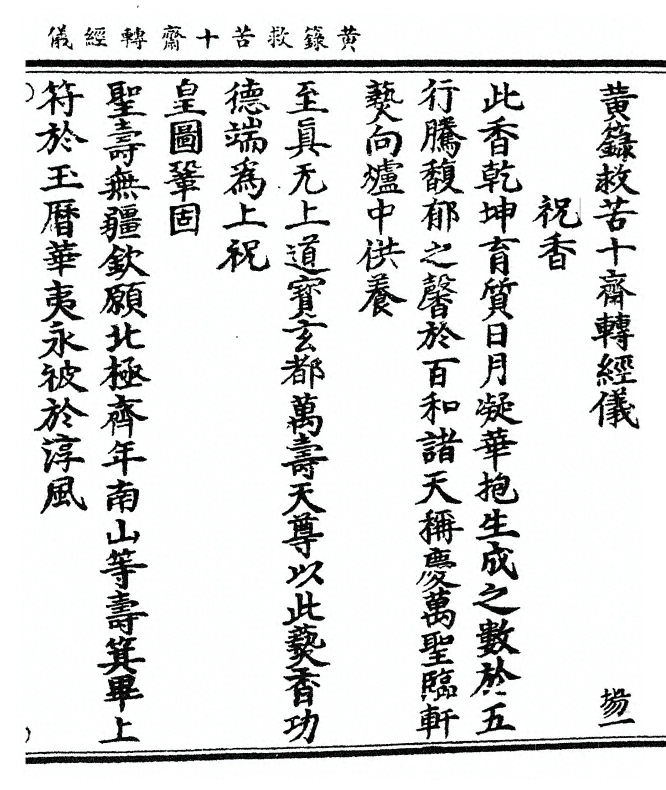 黃籙救苦十齋轉經儀
黃籙救苦十齋轉經儀 場一
祝香
此香乾坤育質日月凝華抱生成之數於五
行騰馥郁之馨於百和諸天稱慶萬聖臨軒
爇向爐中供養
至眞无上道寶玄都萬壽天尊以此爇香功
德端爲上祝
皇圖鞏固
聖壽無疆欽願北極齊年南山等壽箕畢上
符於玉曆華夷永被於淳風